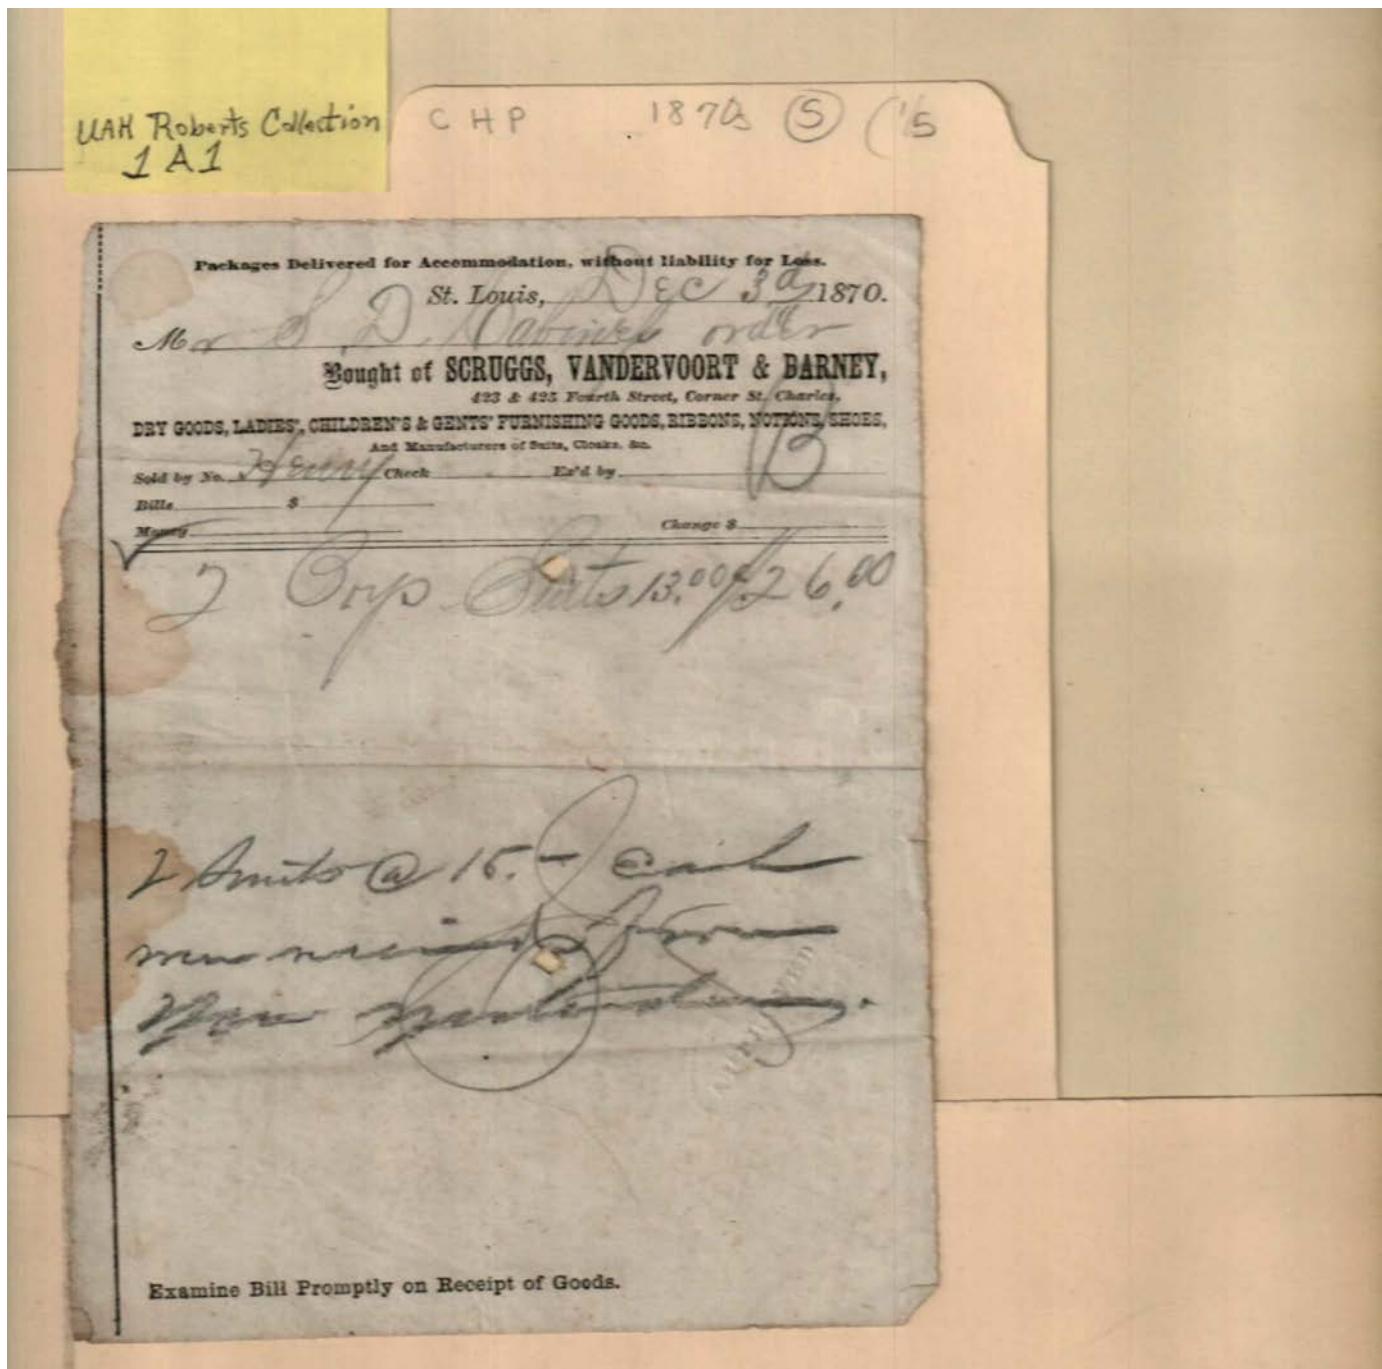 UAH Roberts Collection
1 A 1
CHP 1870s (5) (15
Packages Delivered for Accommodation, without liability for Loss.
St. Louis, Dec 3d 1870.
Mr S. D. order
Bought of SCRUGGS, VANDERVOORT & BARNEY,
423 & 425 Fourth Street, Corner St. Charles,
DRY GOODS, LADIES', CHILDREN'S & GENTS' FURNISHING GOODS, RIBBONS, NOTIONS, SHOES,
And Manufacturers of Suits, Cloaks, &c.
Sold by No. Henry Check Ex'd by B
Bills $
Money Change $
2 Suits 13.00 26.00
2 Suits @ 15.- each
from
New
Examine Bill Promptly on Receipt of Goods.